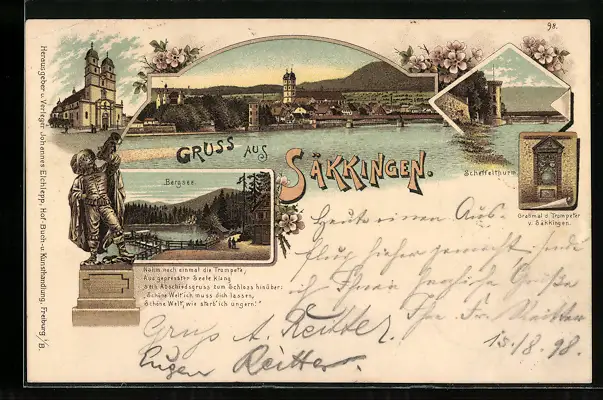 98.
Herausgeber u. Verleger Johannes Elchlepp, Hof Buch- u. Kunsthandlung, Freiburg i/B.
GRUSS AUS SÄKKINGEN.
Scheffelthurm
Grabmal d. Trompeter
v. Säkkingen.
Bergsee.
Nahm noch einmal die Trompete,
Aus gepresster Seele klang
Sein Abschiedsgruss zum Schloss hinüber;
"Schöne Welt, ich muss dich lassen,
Schöne Welt, wie sterb' ich ungern!"
Heute einen Aus-
flug hieher gemacht sende
ich Ihnen herzliche Grüße
Ihr Fr.
15/8. 98.
Gruss A. Reitter
Eugen Reitter